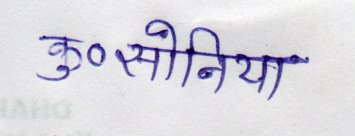 कु० सोनिया